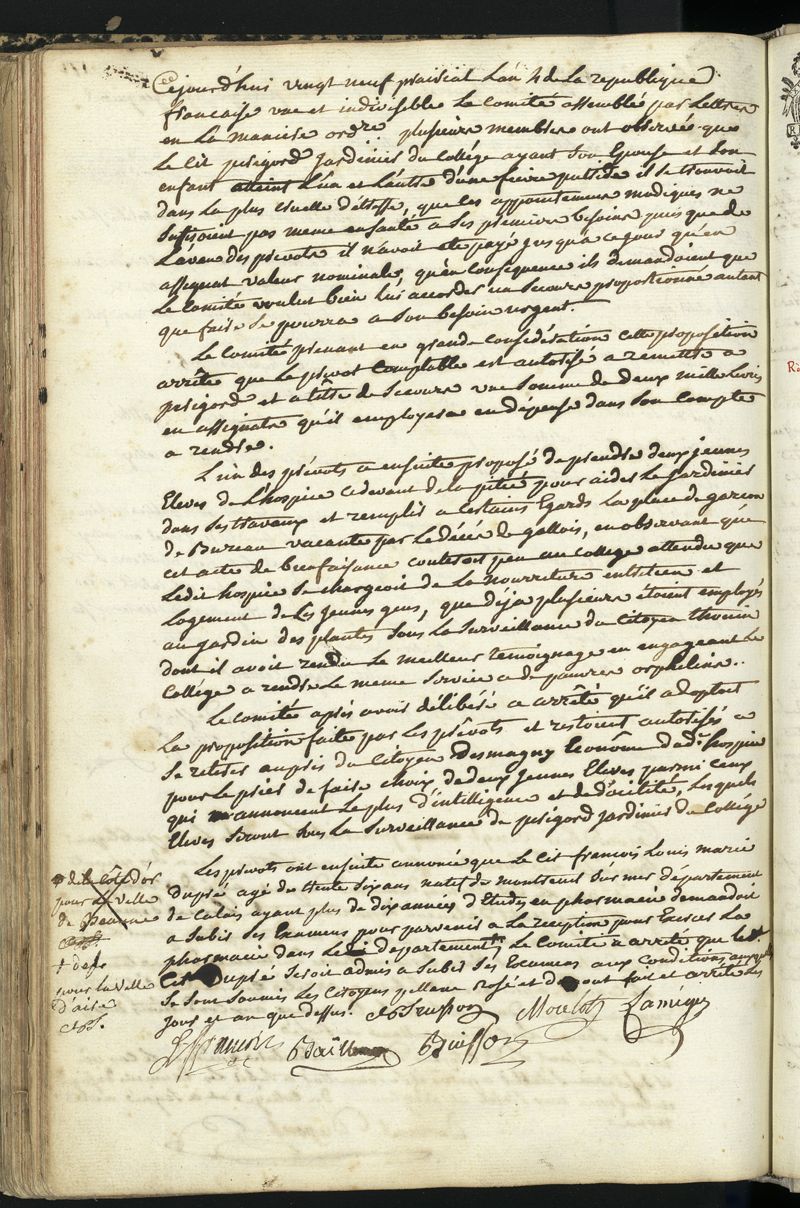 Cejourd'hui vingt neuf prairial L'an 4 de La republique
francaise une et indivisible Le Comité assemblée par Lettres
en La maniere ordre plusieurs membres ont observés que
Le Cit perigord Jardinier du Collége ayant son Epouse et Son
enfant atteint L'un et L'autre d'une fievre putride il se trouvoit
dans La plus Cruelle détresse, que les appointemens modiques ne
Sufisoient pas meme a Ses premiers besoins puis que de
L'aveu des prevots il n'avoit été payé jusqu'a ce jour qu'en
assignat valeur nominale, qu'en Conséquence ils demandoient que
Le Comité voulut bien Lui accorder un Secours proportionné autant
que faire Se pourra a Son besoin urgent.
Le Comité prenant en grande Considération Cette proposition
arrête que Le prévot Comptable est autorisé a remettre a
perigord et a titre de Secours une Somme de deux mille Livres
en assignats qu'il employera en dépense dans Son Compte
a rendre.
L'un des prévots a ensuite proposé de prendre deux jeunes
Eleves de L'hospice cidevant de la pitié pour aider Le Jardinier
dans Ses travaux et remplir a Certains Egards La place de garcon
de Bureau vacante par Le décés de gallois, en observant que
cet acte de bienfaisance couteroit peu au College attendu que
Ledit hospice Se chargeoit de La Nourriture entretien et
Logement de Ces jeunes gens, que déja plusieurs étoient employés
au jardin des plantes Sous La Surveillance du Citoyen thouin
dont il avoit rendu Le meilleur temoignage en engageant Le
Collége a rendre Le meme Service a de pauvres orphelins..
Le Comité aprés avoir délibéré a arrêté qu'il adoptoit
La proposition faite par Les prévots et restoient autorisés a
Se retirer auprès du Citoyen Desmagny Econôme dud. hospice
pour Le prier de faire choix de deux Jeunes Eleves parmi Ceux
qui annoncent Le plus d'intelligence et de docilité, Lesquels
Eleves Seront Sous La Surveillance de perigord jardinier du Collége
Les prevots ont ensuite annoncé que Le Cit francois Louis marie
Dupré agé de trente Six ans natif de montreuil Sur mer département
de Calais ayant plus de dix années d'Etudes en pharmacie demandoit
a Subir Ses Examens pour parvenir a La réception pour Exercer La
pharmacie dans Le département Le Comite a arrêté que Le
Cit Dupré Seroit admis a Subir Ses Examens aux Conditions auxquelles
Se Sont Soumis Les Citoyens pellane rosé et fait et arrêté Les
Jour et an que dessus. Trusson Moulot
de la Côte d'or
pour La Ville
de Beaune
pour la Ville